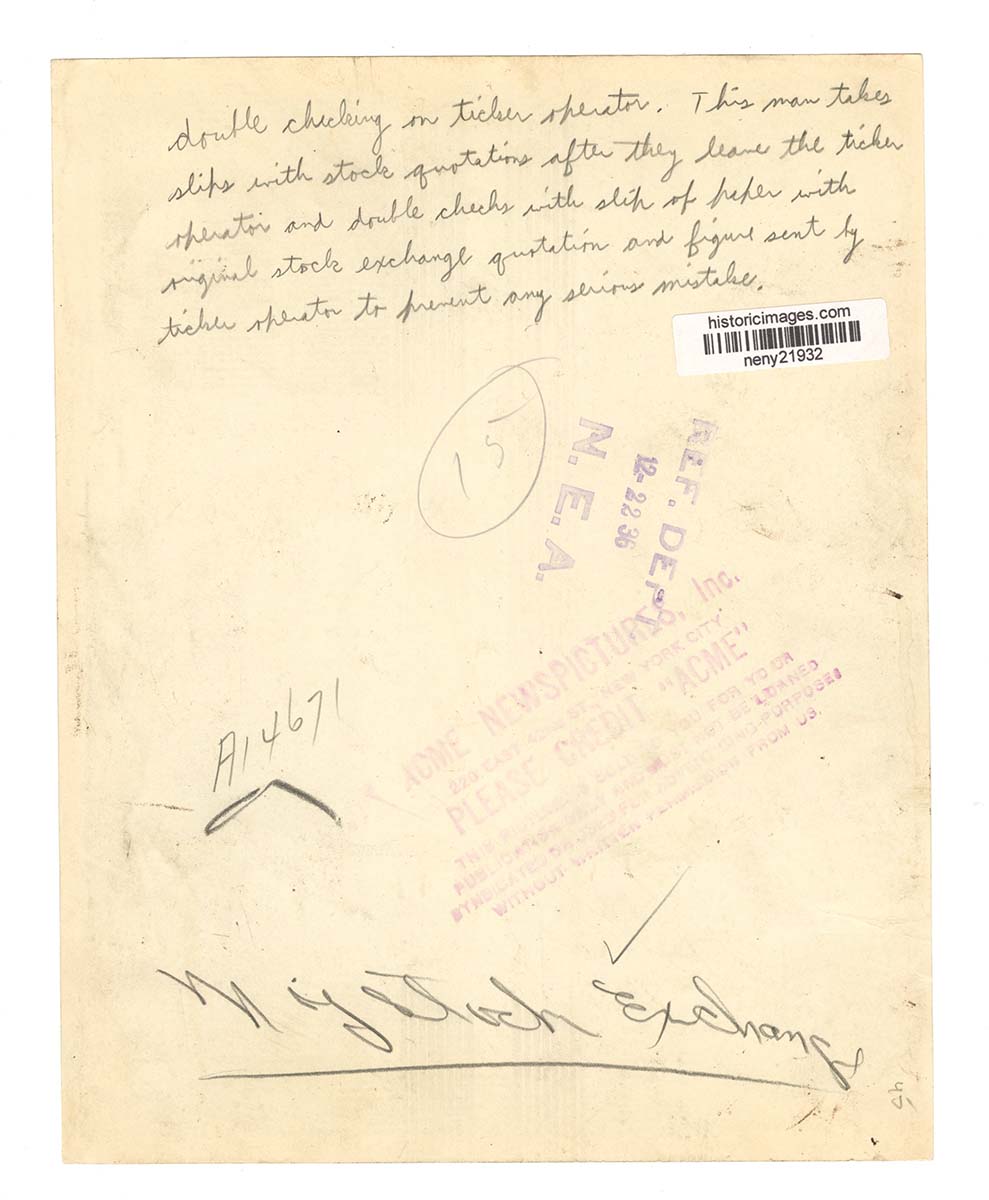 double checking on ticker operator. This man takes
slips with stock quotations after they leave the ticker
operator and double checks with slip of paper with
original stock exchange quotation and figure sent by
ticker operator to prevent any serious mistake.
historicimages.com
neny21932
15
REF. DEPT.
12-22 36
N. E. A.
ACME NEWSPICTURES, Inc.
220 EAST 42nd ST., NEW YORK CITY
PLEASE CREDIT "ACME"
THIS PICTURE IS SOLD YOU FOR YOUR
PUBLICATION ONLY AND MUST NOT BE LOANED
SYNDICATED OR USED FOR ADVERTISING PURPOSES
WITHOUT WRITTEN PERMISSION FROM US.
A14671
N Y Stock Exchang